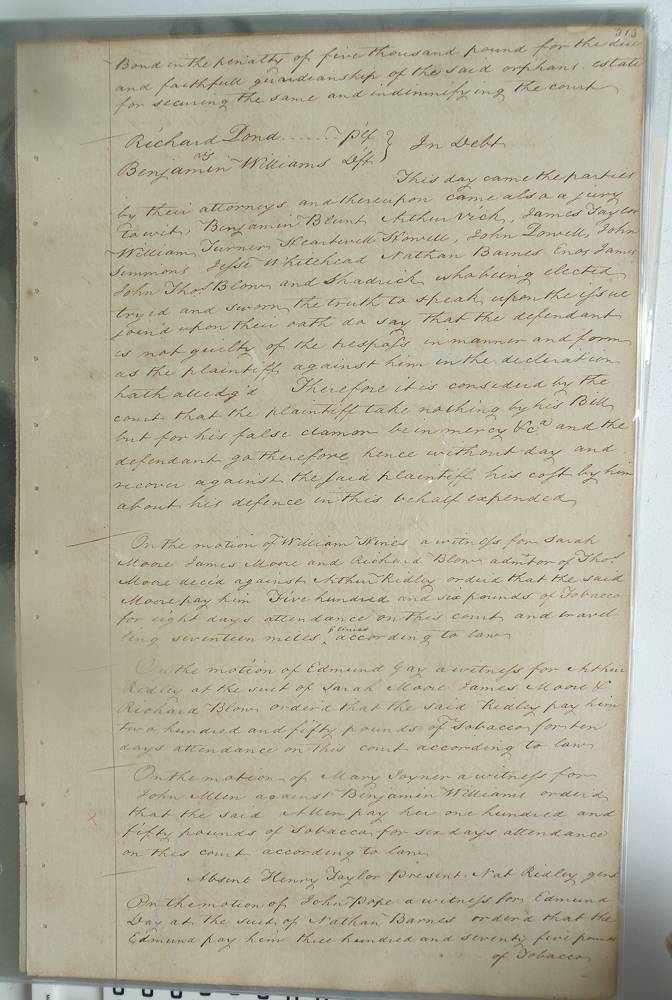 313
Bond in the penalty of five thousand pound for the due
and faithfull guardianship of the said orphans estate
for securing the same and indemnifying the court
Richard Pond Plf } In Debt
vs
Benjamin Williams Dft
This day came the parties
by their attorneys and thereupon came also a jury
to wit, Benjamin Blunt Arthur Vick, James Taylor
William Turner Heartwell Howell, John Powell, John
Simmons Jesse Whitehead Nathan Barnes Enos James
John Thos Blow and Shadrick who being elected
tryed and sworn the truth to speak upon the issue
join'd upon their oath do say that the defendant
is not guilty of the trespass in manner and form
as the plaintiff against him in the decleration
hath alledg'd Therefore it is considerd by the
court that the plaintiff take nothing by his Bill
but for his false clamor be in mercy &ca and the
defendant go therefore hence without day and
recover against the said plaintiff his cost by him
about his defence in this behalf expended
On the motion of William Hines a witness for Sarah
Moore James Moore and Richard Blow admtor of Thos
Moore decd against Arthur Ridley orderd that the said
Moore pay him Five hundred and six pounds of Tobacco
for eight days attendance on this court and travel-
ling seventeen miles according to law
On the motion of Edmund Gay a witness for Arthur
Ridley at the suit of Sarah Moore James Moore &
Richard Blow order'd that the said Ridley pay him
two hundred and fifty pounds of Tobacco for ten
days attendance on this court according to law
On the motion of Mary Joyner a witness for
John Allen against Benjamin Williams orderd
that the said Allen pay her one hundred and
fifty pounds of Tobacco for six days attendance
on this court according to law
Absent Henry Taylor Present Nat Ridley gent
On the motion of John Pope a witness for Edmund
Day at the suit of Nathan Barnes order'd that the
Edmund pay him three hundred and seventy five pounds
of Tobacco